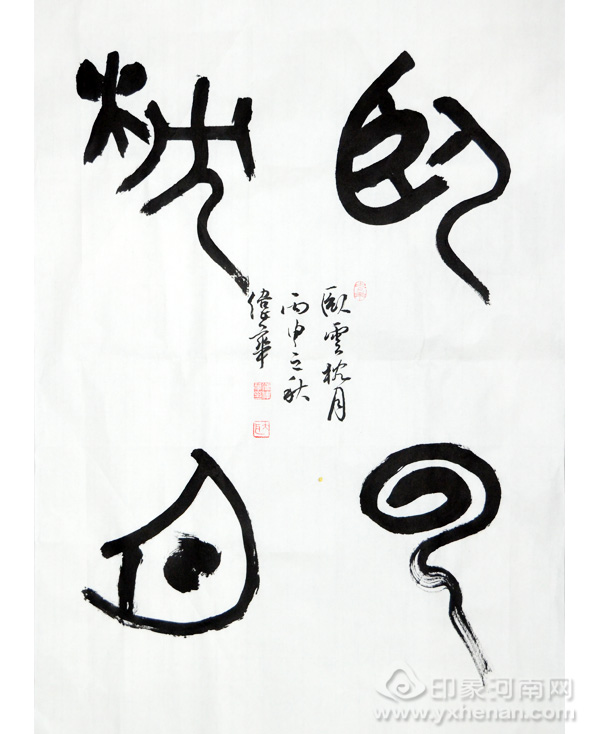 臥雲
枕月
臥雲枕月
丙申之秋
偉華
印象河南网
www.yxhenan.com